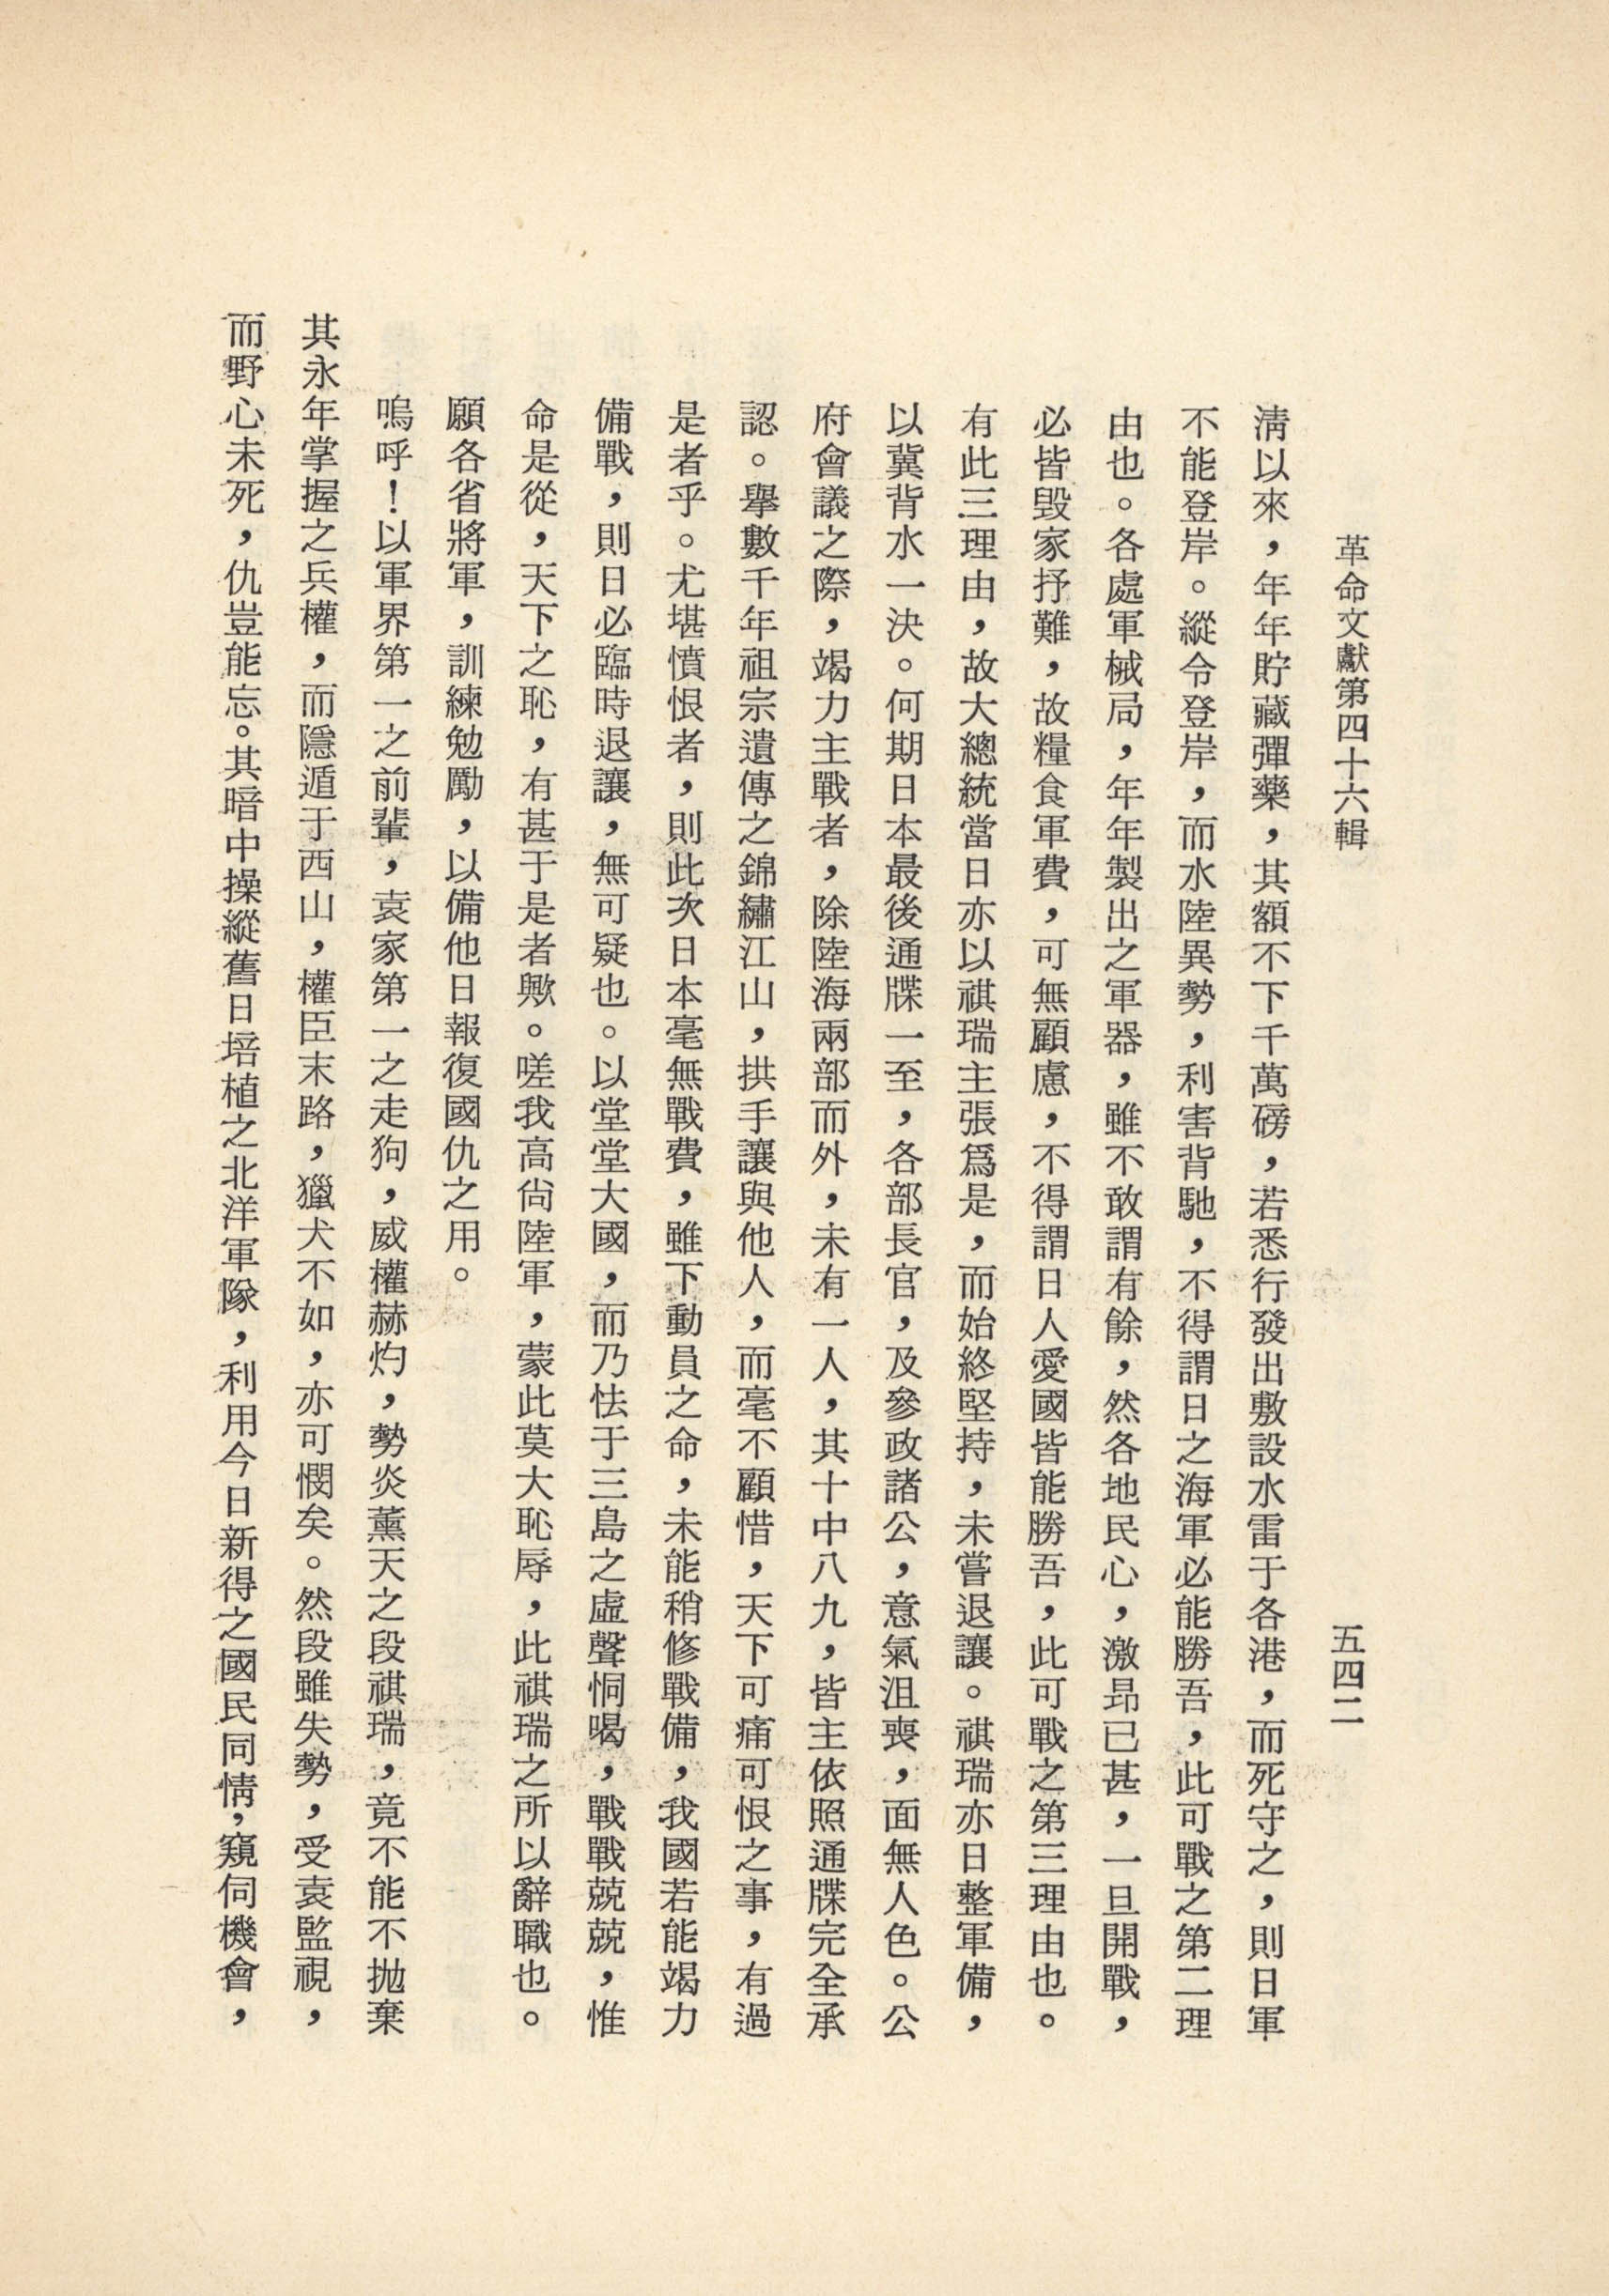 革命文獻第四十六輯
五四二
淸以來，年年貯藏彈藥，其額不下千萬磅，若悉行發出敷設水雷于各港，而死守之，則日軍
不能登岸。縱令登岸，而水陸異勢，利害背馳，不得謂日之海軍必能勝吾，此可戰之第二理
由也。各處軍械局，年年製出之軍器，雖不敢謂有餘，然各地民心，激昂已甚，一旦開戰，
必皆毀家抒難，故糧食軍費，可無顧慮，不得謂日人愛國皆能勝吾，此可戰之第三理由也。
有此三理由，故大總統當日亦以祺瑞主張爲是，而始終堅持，未嘗退讓。祺瑞亦日整軍備，
以冀背水一決。何期日本最後通牒一至，各部長官，及參政諸公，意氣沮喪，面無人色。公
府會議之際，竭力主戰者，除陸海兩部而外，未有一人，其十中八九，皆主依照通牒完全承
認。舉數千年祖宗遺傳之錦繡江山，拱手讓與他人，而毫不顧惜，天下可痛可恨之事，有過
是者乎。尤堪憤恨者，則此次日本毫無戰費，雖下動員之命，未能稍修戰備，我國若能竭力
備戰，則日必臨時退讓，無可疑也。以堂堂大國，而乃怯于三島之虛聲恫喝，戰戰兢兢，惟
命是從，天下之恥，有甚于是者歟。嗟我高尙陸軍，蒙此莫大恥辱，此祺瑞之所以辭職也。
願各省將軍，訓練勉勵，以備他日報復國仇之用。
嗚呼！以軍界第一之前輩，袁家第一之走狗，威權赫灼，勢炎薰天之段祺瑞，竟不能不拋棄
其永年掌握之兵權，而隱遁于西山，權臣末路，獵犬不如，亦可憫矣。然段雖失勢，受袁監視，
而野心未死，仇豈能忘。其暗中操縱舊日培植之北洋軍隊，利用今日新得之國民同情，窺伺機會，